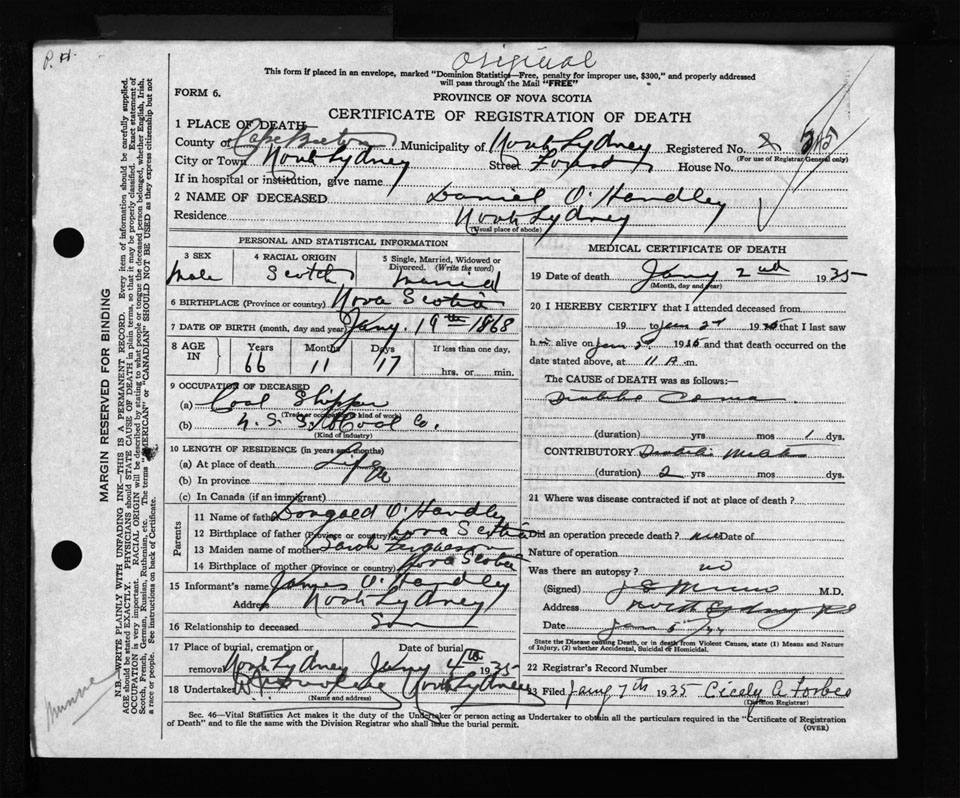 P. H.
Original
This form if placed in an envelope, marked "Dominion Statistics—Free, penalty for improper use, $300," and properly addressed
will pass through the Mail "FREE"
FORM 6.
PROVINCE OF NOVA SCOTIA
CERTIFICATE OF REGISTRATION OF DEATH
1 PLACE OF DEATH
County of Cape Breton Municipality of North Sydney Registered No. 2
(For use of Registrar General only)
City or Town North Sydney Street House No.
If in hospital or institution, give name
2 NAME OF DECEASED Daniel O'Handley
Residence North Sydney
(Usual place of abode)
PERSONAL AND STATISTICAL INFORMATION
3 SEX
Male
4 RACIAL ORIGIN
Scotch
5 Single, Married, Widowed or
Divorced. (Write the word)
Married
6 BIRTHPLACE (Province or country) Nova Scotia
7 DATE OF BIRTH (month, day and year) Jany. 19th 1868
8 AGE IN
Years Months Days If less than one day,
66 11 17 hrs. or min.
9 OCCUPATION OF DECEASED
(a) Coal Shipper
(Trade, occupation, kind of work)
(b) N. S. S. & Coal Co.
(Kind of industry)
10 LENGTH OF RESIDENCE (in years and months)
(a) At place of death Life
(b) In province
(c) In Canada (if an immigrant)
Parents
11 Name of father O'Handley
12 Birthplace of father (Province or country) Nova Scotia
13 Maiden name of mother Sarah Ferguson
14 Birthplace of mother (Province or country) Nova Scotia
15 Informant's name James O'Handley
Address North Sydney
16 Relationship to deceased Son
17 Place of burial, cremation or Date of burial
removal North Sydney Jany 4th 1935
18 Undertaker North Sydney
(Name and address)
MEDICAL CERTIFICATE OF DEATH
19 Date of death Jany 2nd 1935
(Month, day and year)
20 I HEREBY CERTIFY that I attended deceased from
19 to Jan 2d 1935 that I last saw
him alive on Jan 2 1935 and that death occurred on the
date stated above, at 11 A m.
The CAUSE of DEATH was as follows:
Diabetic Coma
(duration) yrs mos 1 dys.
CONTRIBUTORY Diabetes
(duration) 2 yrs mos dys.
21 Where was disease contracted if not at place of death?
Did an operation precede death? Date of
Nature of operation
Was there an autopsy? no
(Signed) M.D.
Address North Sydney
Date Jan
State the Disease causing Death, or in death from Violent Causes, state (1) Means and
Nature of Injury, (2) whether Accidental, Suicidal or Homicidal.
22 Registrar's Record Number
23 Filed Jany 7th 1935 Cicely A Forbes
(Division Registrar)
Sec. 46—Vital Statistics Act makes it the duty of the Undertaker or person acting as Undertaker to obtain all the particulars required in the "Certificate of Registration
of Death" and to file the same with the Division Registrar who shall issue the burial permit.
(OVER)
MARGIN RESERVED FOR BINDING
N.B.—WRITE PLAINLY WITH UNFADING INK—THIS IS A PERMANENT RECORD. Every item of information should be carefully supplied.
AGE should be stated EXACTLY. PHYSICIANS should STATE CAUSE OF DEATH in plain terms, so that it may be properly classified. Exact statement of
OCCUPATION is very important. RACIAL ORIGIN will be described by stating to what people or tongue the deceased person belonged, whether English, Irish,
Scotch, French, German, Russian, Ruthenian, etc. The terms "AMERICAN" or "CANADIAN" SHOULD NOT BE USED as they express citizenship but not
a race or people. See instructions on back of Certificate.